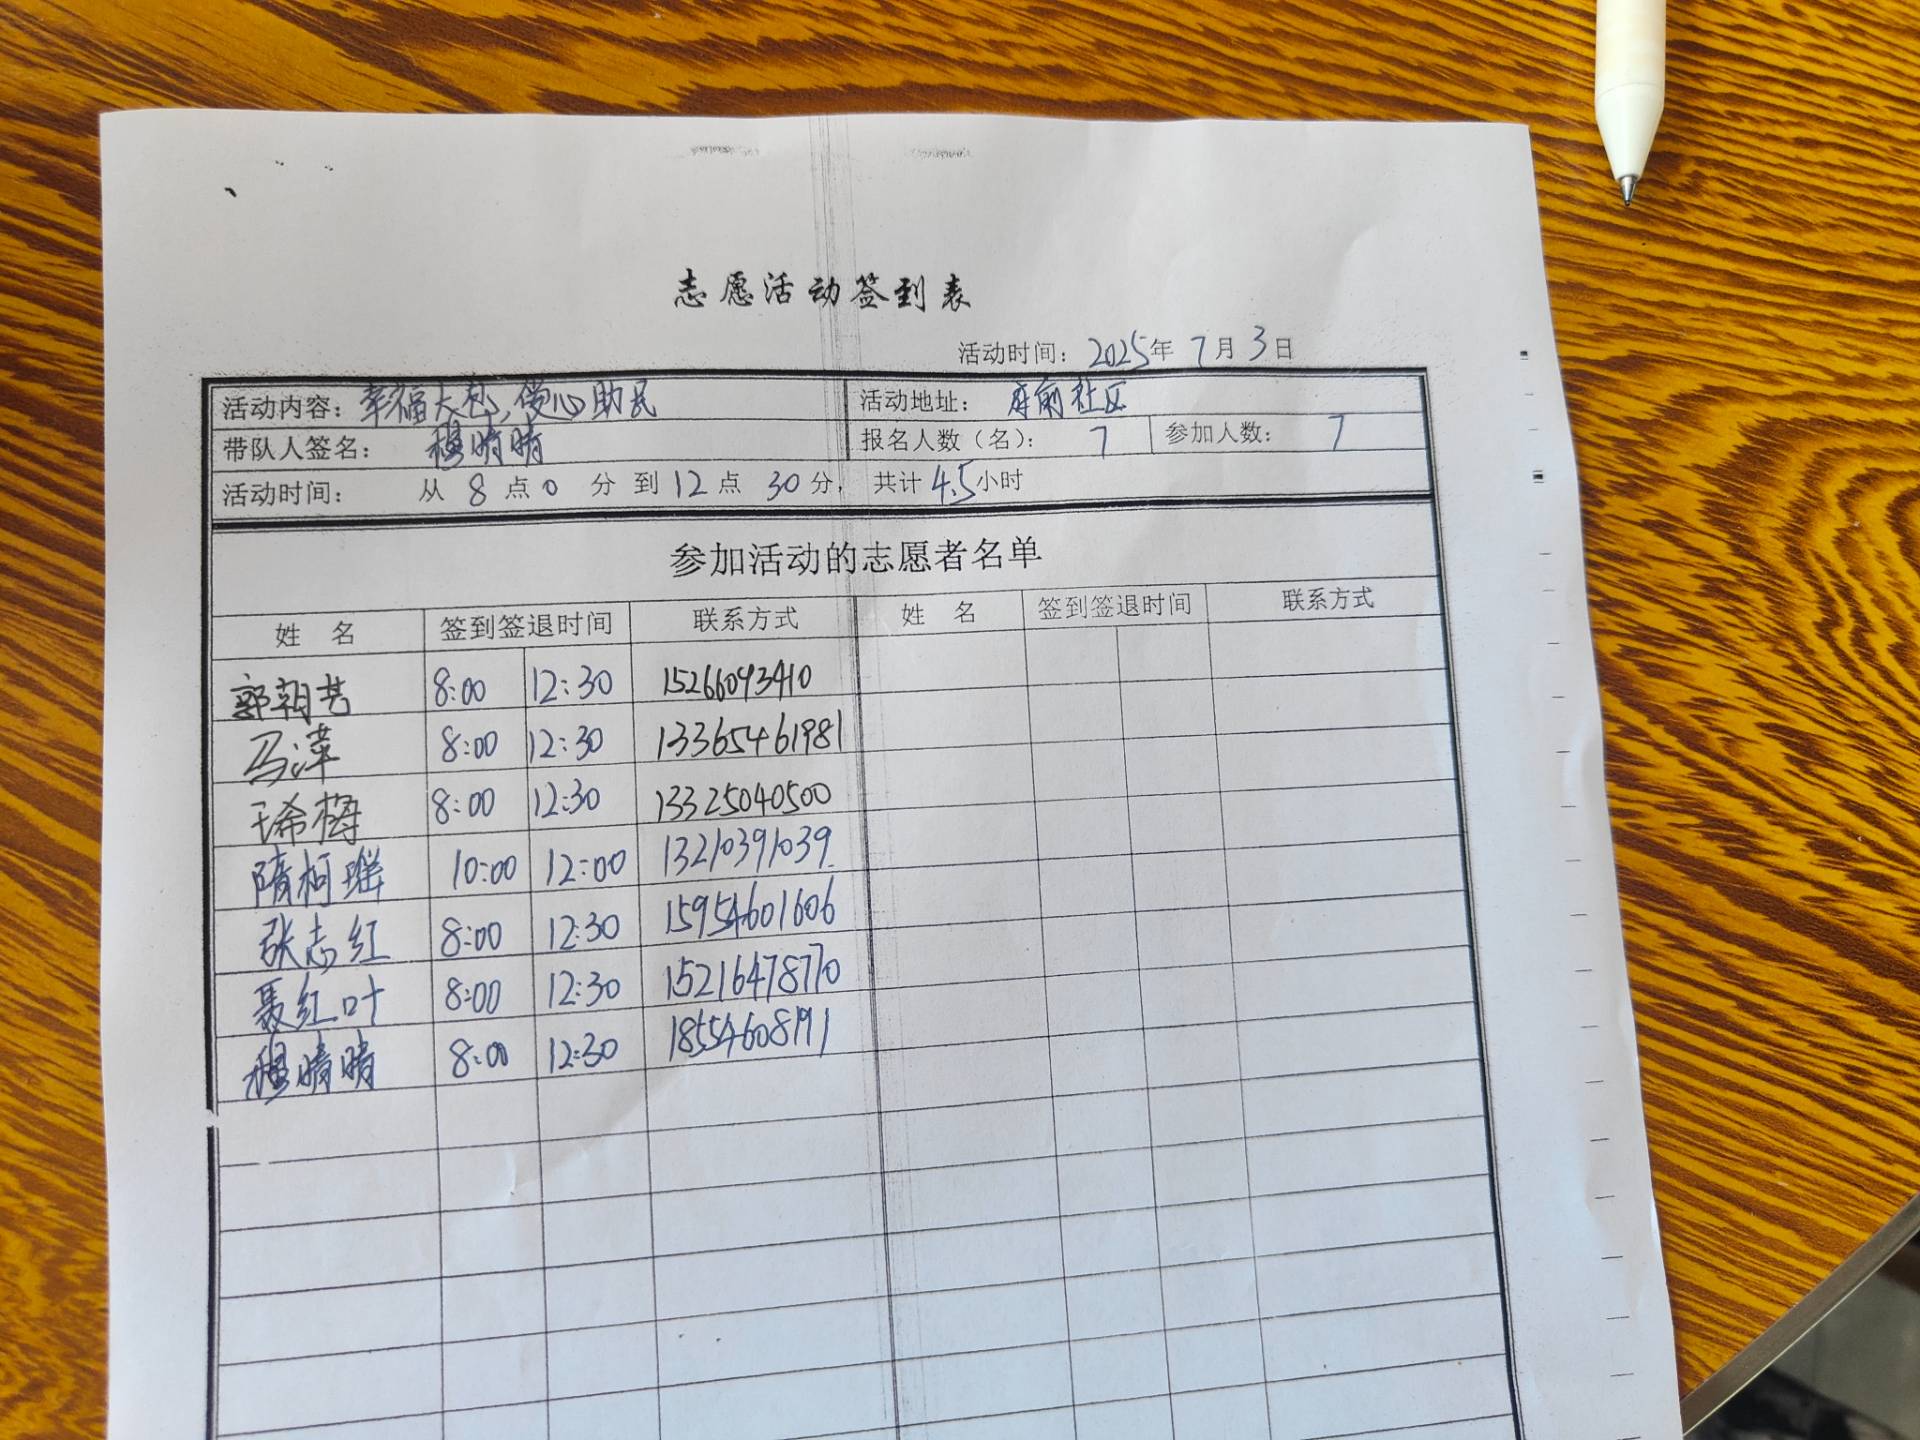 志愿活动签到表
活动时间：2025年 7月 3日
活动内容：幸福大包，爱心助民 活动地址：府前社区
带队人签名：穆晴晴 报名人数（名）：7 参加人数：7
活动时间：从 8 点 0 分 到 12 点 30 分，共计 4.5 小时
参加活动的志愿者名单
姓 名 签到签退时间 联系方式 姓 名 签到签退时间 联系方式
郭朝芸 8:00 12:30 15266093410
马泽 8:00 12:30 13365461981
8:00 12:30 13325040500
隋柯瑶 10:00 12:00 13210391039
张志红 8:00 12:30 15954601606
聂红叶 8:00 12:30 15216478770
穆晴晴 8:00 12:30 18554608191